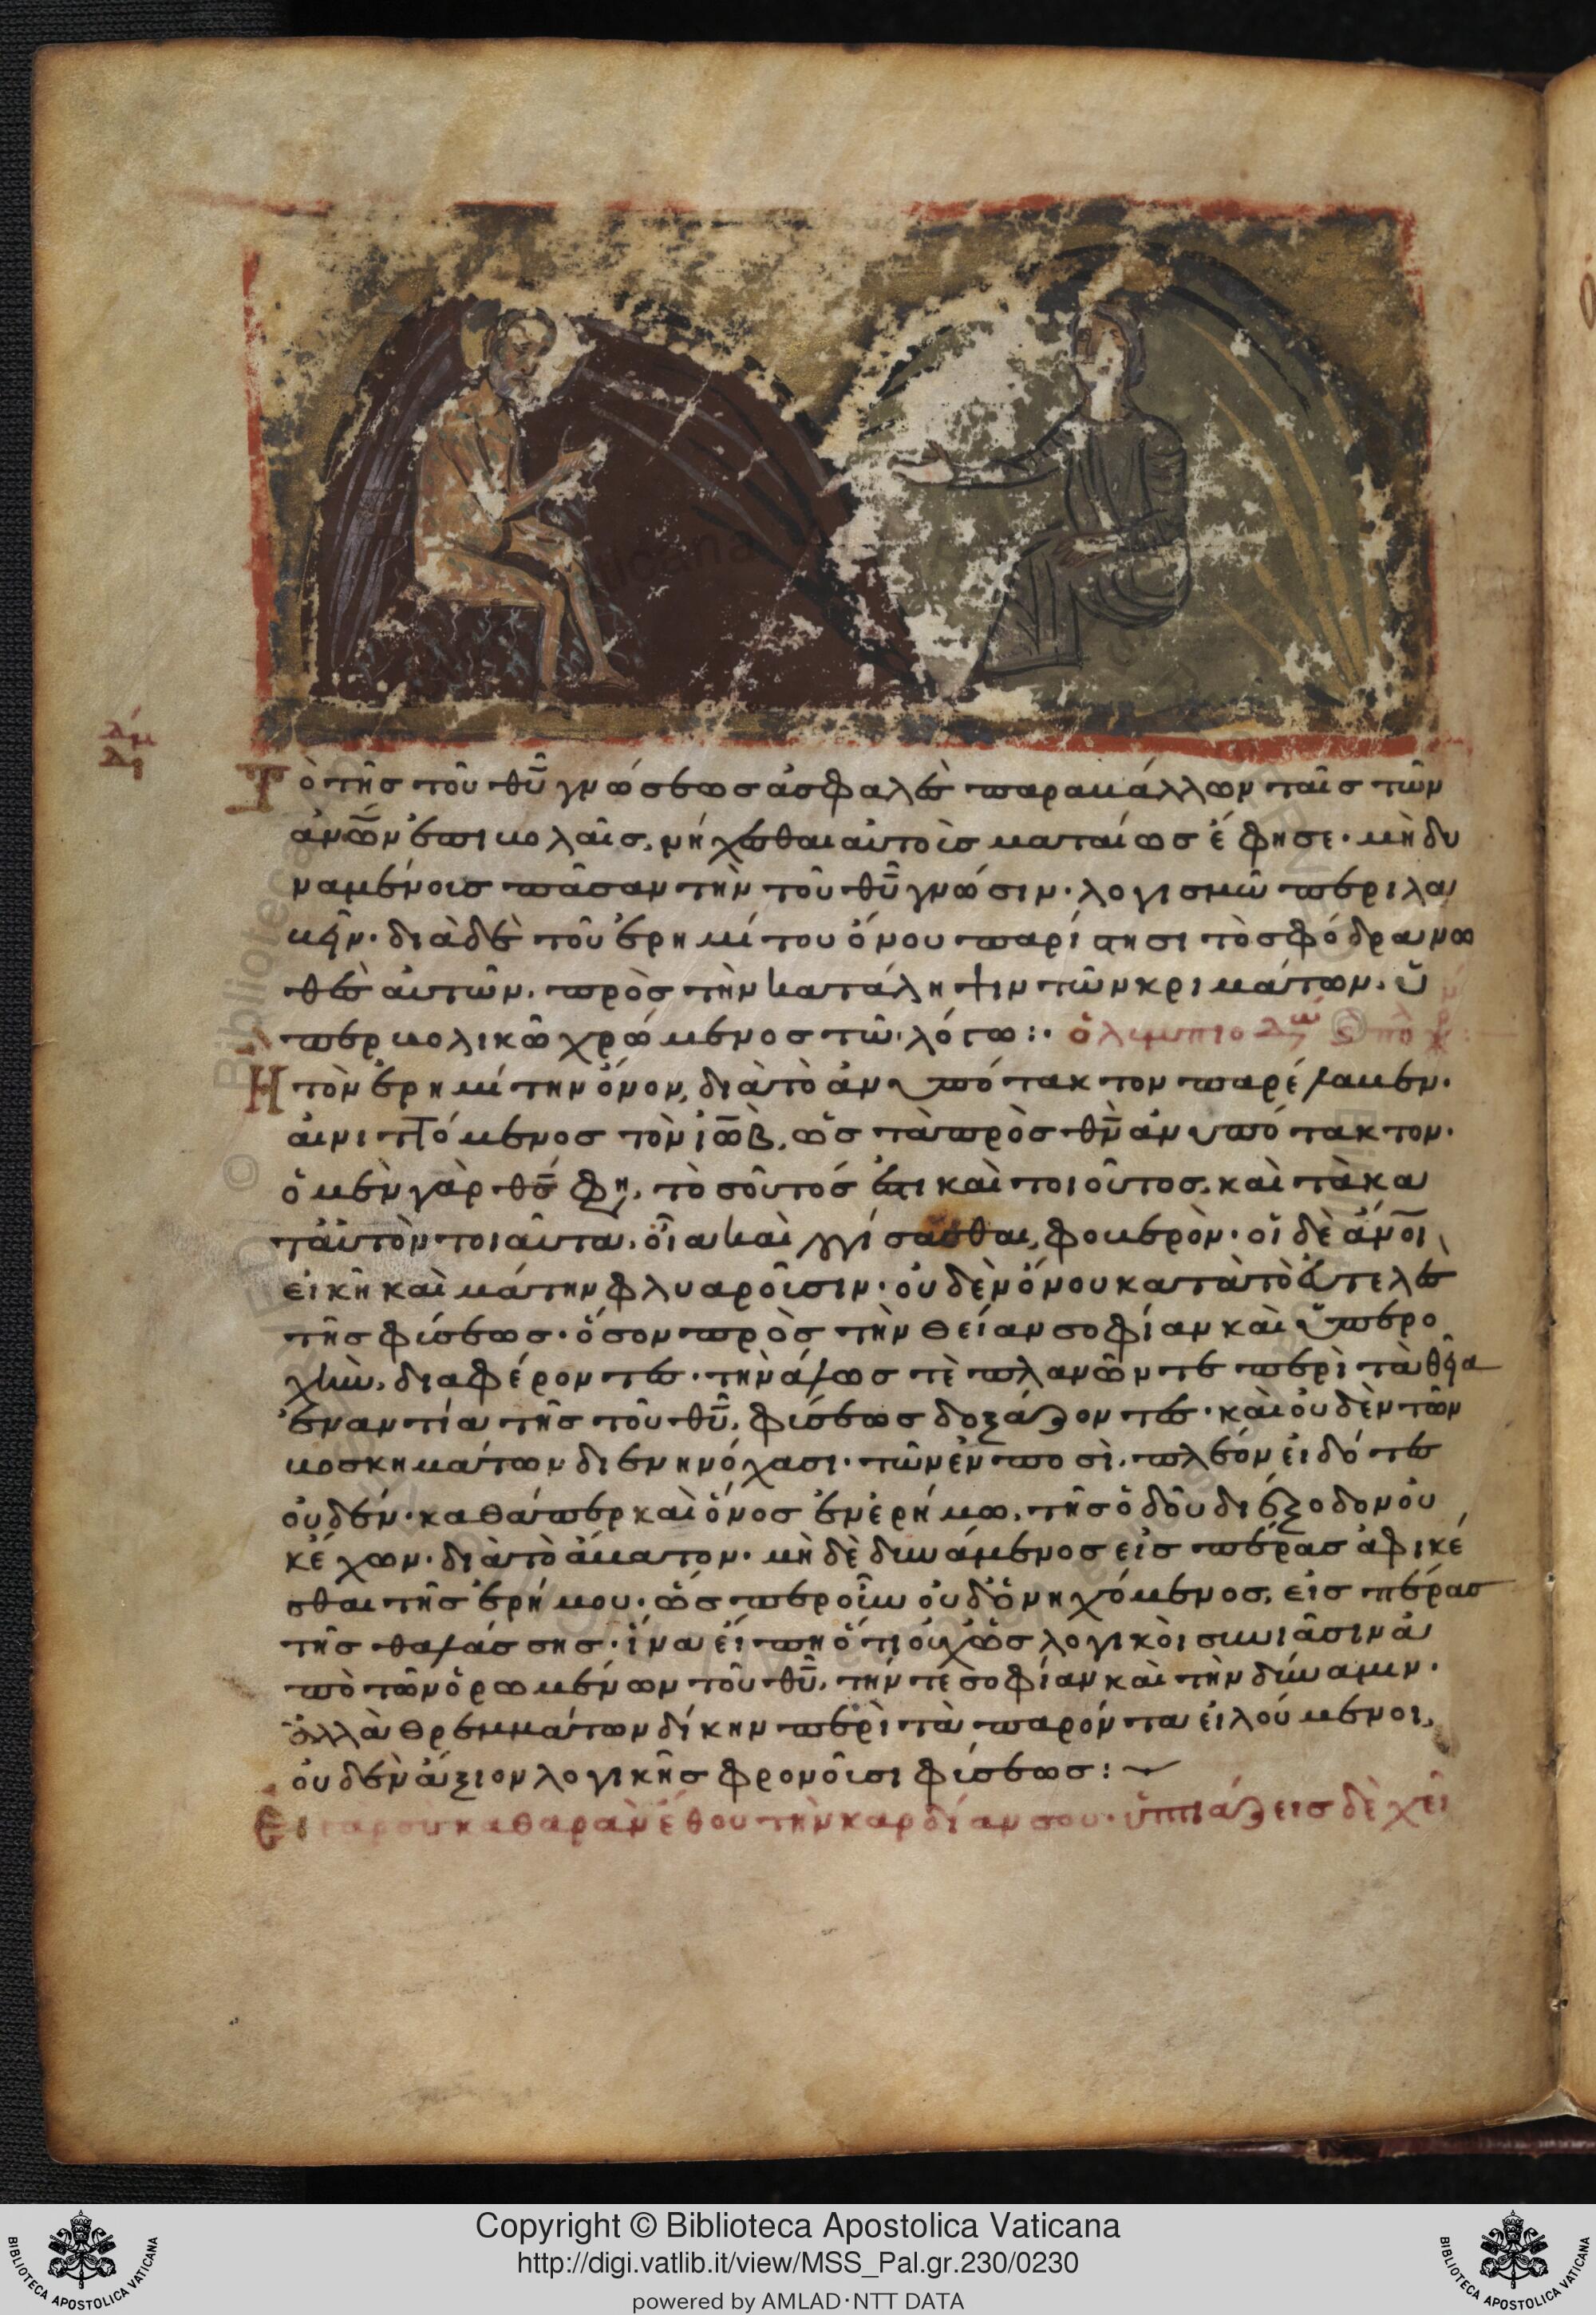 Τὸ τῆς τοῦ θυ γνώσεως ἀσφαλὲς παρακάλλων ταῖς τῶν
ἀνων ἐπιβολαῖς, νήχεσθαι αὐτοὺς ματαίως ἔφησε· μὴ δυ
ναμένοις πᾶσαν τὴν τοῦ θυ γνῶσιν· λογισμῶ περιλα
βεῖν· διὰ δὲ τοῦ ἐρημίτου ὄνου παρίστησι τὸ σφόδρα νω
θὲς αὐτῶν. πρὸς τὴν κατάληψιν τῶν κριμάτων. ὑ
περβολικῶ χρώμενος τῶ λόγω:·
Ἢ τὸν ἐρημίτην ὄνον, διὰ τὸ ἀνυπότακτον παρέλαβεν·
αἰνιττόμενος τὸν ἰὼβ, ὡς τὰ πρὸς θν ἀνυπότακτον·
ὁ μὲν γὰρ θς φη, τοσοῦτός ἐστι καὶ τοιοῦτος, καὶ τὰ κα
τ αὐτὸν τοιαῦτα. οἷα καὶ ἐγγίσασθαι, φοβερὸν· οἱ δὲ ἀνοι
εἰκῆ καὶ μάτην φλυαροῦσιν· οὐδὲν ὄνου κατὰ τὸ εὐτελὲς
τῆς φύσεως· ὅσον πρὸς τὴν θείαν σοφίαν καὶ ὑπερο
χὴν, διαφέροντες· τηνάλως τὲ πλανῶντε περὶ τὰ θεῖα
ἐναντία τῆς τοῦ θυ φύσεως δοξάζοντες· καὶ οὐδὲν τῶν
βοσκημάτων διενηνόχασι· τῶν ἐν ποσὶ. πλέον εἰδότες
οὐδέν· καθάπερ καὶ ὄνος ἐν ἐρήμω, τῆς ὁδοῦ διέξοδον οὐ
κ ἔχων· διὰ τὸ ἄβατον· μὴ δὲ δυνάμενος εἰς πέρας ἀφικέ
σθαι τῆς ἐρήμου· ὥσπερ οὖν οὐδ ὁ νηχόμενος, εἰς πέρας
τῆς θαλάσσης· ἵνα εἴπη ὅτι οὐχ ὡς λογικοὶ συνιᾶσιν ἀ
πὸ τῶν ὁρωμένων τοῦ θυ, τήν τε σοφίαν καὶ τὴν δύναμιν·
ἀλλὰ θρεμμάτων δίκην περὶ τὰ παρόντα εἰλούμενοι,
οὐδὲν ἄξιον λογικῆς φρονοῦσι φύσεως:
Εἰ γὰρ σὺ καθαρὰν ἔθου τὴν καρδίαν σου· ὑπτιάζεις δὲ χεῖ
Copyright © Biblioteca Apostolica Vaticana
http://digi.vatlib.it/view/MSS_Pal.gr.230/0230
powered by AMLAD·NTT DATA
BIBLIOTECA APOSTOLICA VATICANA
BIBLIOTECA APOSTOLICA VATICANA